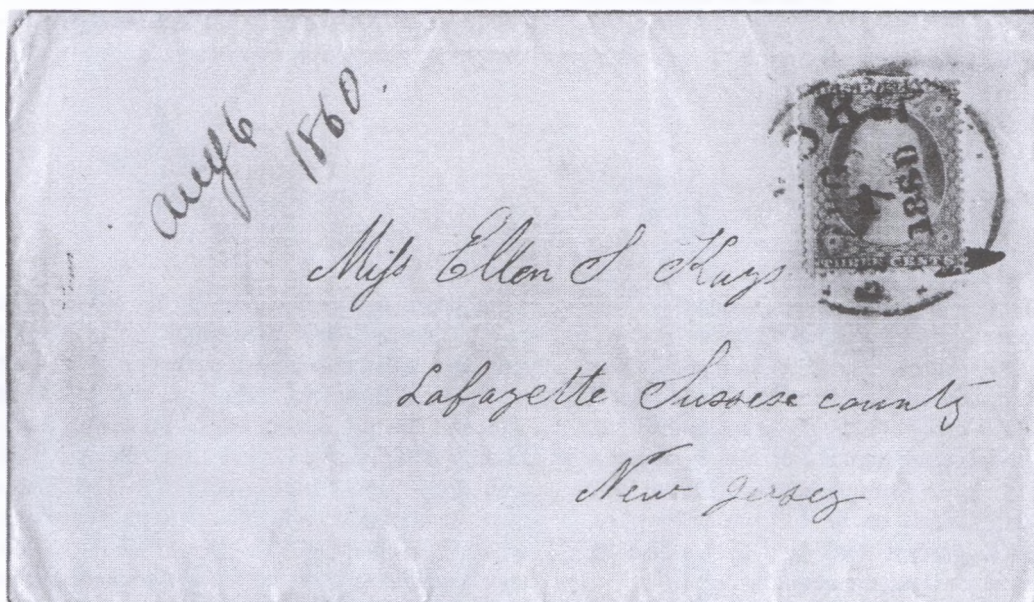 Aug 6
1860.
Miss Ellen S Kays
Lafayette Sussex county
New Jersey
THREE CENTS
1860